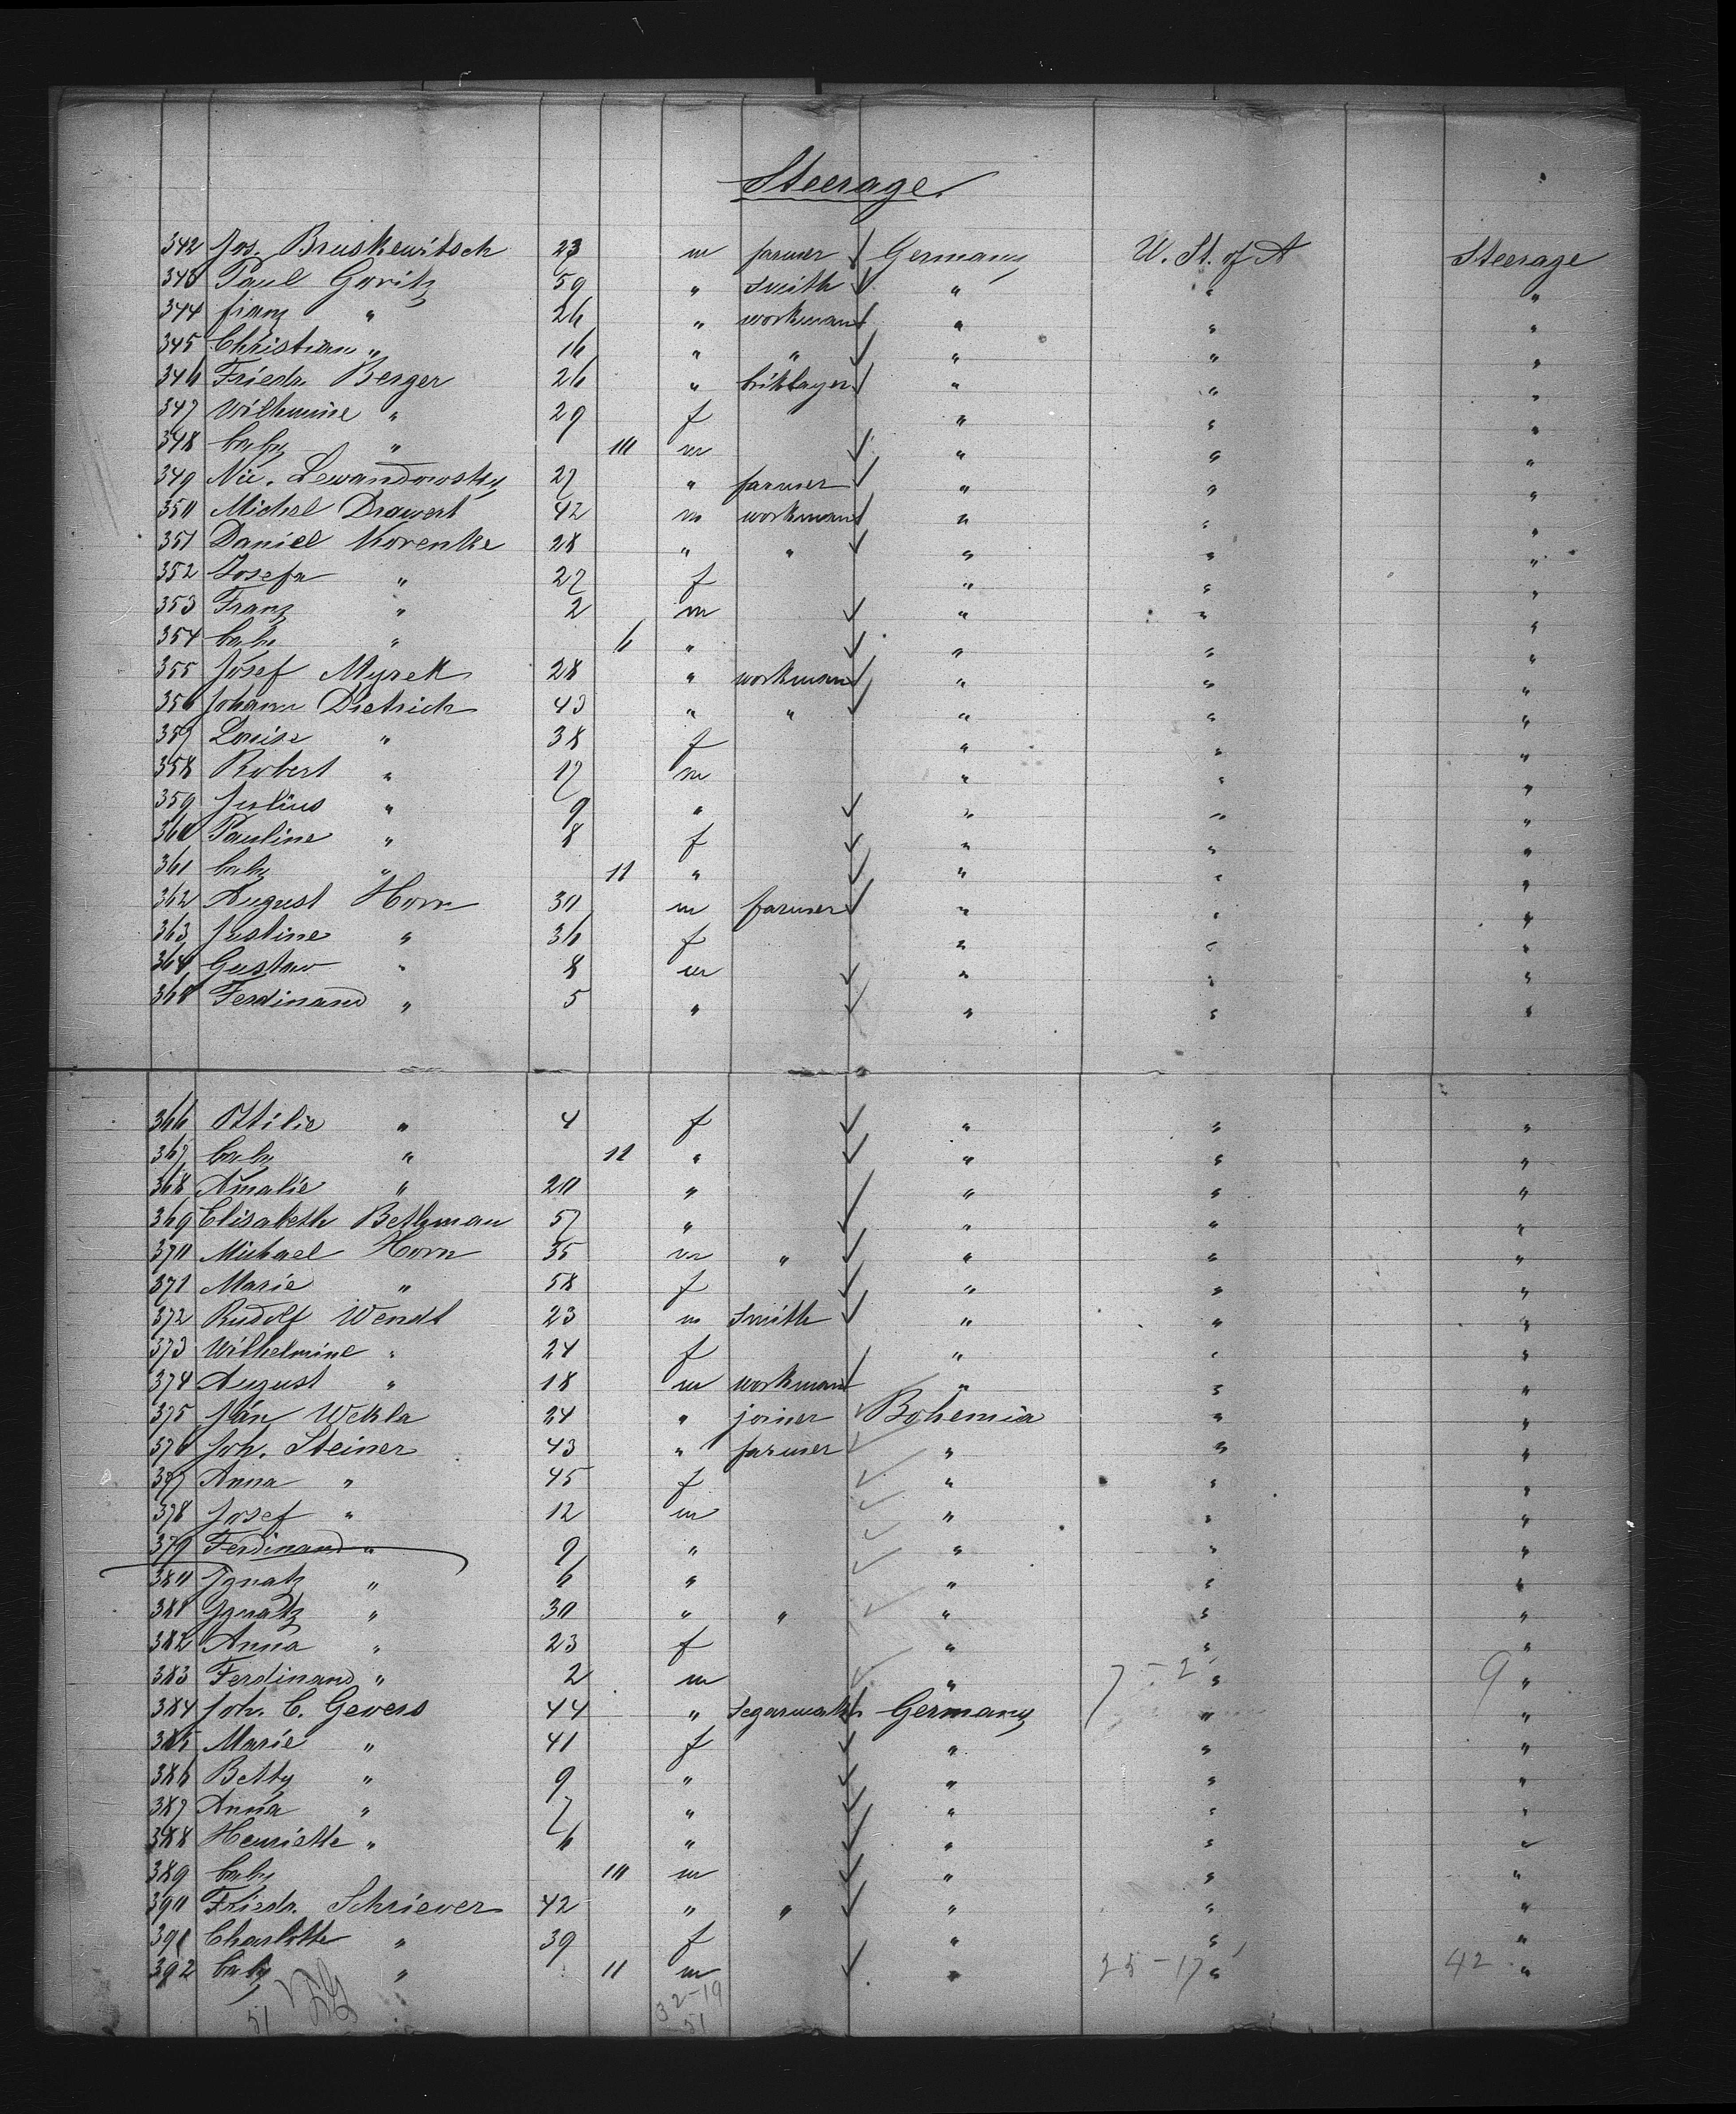 Steerage
342 Jos. Bruskewitsch 23 m farmer Germany U. St. of A Steerage
343 Paul Goritz 59 " smith " " "
344 franz " 26 " workman " " "
345 Christian " 16 " " " " "
346 Friedr. Berger 26 " briklayer " " "
347 Wilhmine " 29 f " " "
348 baby " 10 m " " "
349 Nic. Lewandowsky 27 " farmer " " "
350 Michel Drawert 42 m workman " " "
351 Daniel Korenke 28 " " " " "
352 Josefa " 27 f " " "
353 Franz " 2 m " " "
354 baby " 6 " " " "
355 Josef Myrek 28 " workman " " "
356 Johann Dietrich 43 " " " " "
357 Louise " 38 f " " "
358 Robert " 17 m " " "
359 Julius " 9 " " " "
360 Pauline " 8 f " " "
361 baby " 11 " " " "
362 August Horn 30 m farmer " " "
363 Justine " 36 f " " "
364 Gustav " 8 m " " "
365 Ferdinand " 5 " " " "
366 Ottilie " 4 f " " "
367 baby " 11 " " " "
368 Amalie " 20 " " " "
369 Elisabeth Bethman 57 " " " "
370 Michael Horn 35 m " " " "
371 Marie " 58 f " " "
372 Rudolf Wendt 23 m smith " " "
373 Wilhelmine " 24 f " " "
374 August " 18 m workman " " "
375 Ján Wekla 24 " joiner Bohemia " "
376 Joh. Steiner 43 " farmer " " "
377 Anna " 45 f " " "
378 Josef " 12 m " " "
379 Ferdinand " 9 " " " "
380 Ignatz " 6 " " " "
381 Ignatz " 30 " " " " "
382 Anna " 23 f " " "
383 Ferdinand " 2 m " 7 - 2 " 9 "
384 Joh. C. Gevers 44 " Segarmak Germany " "
385 Marie " 41 f " " "
386 Betty " 9 " " " "
387 Anna " 7 " " " "
388 Henriette " 6 " " " "
389 baby 10 m " " "
390 Friedr. Schriever 42 " " " " "
391 Charlotte " 39 f " " "
392 baby " 11 m " 25 - 17 " 42 "
51 32-19
51